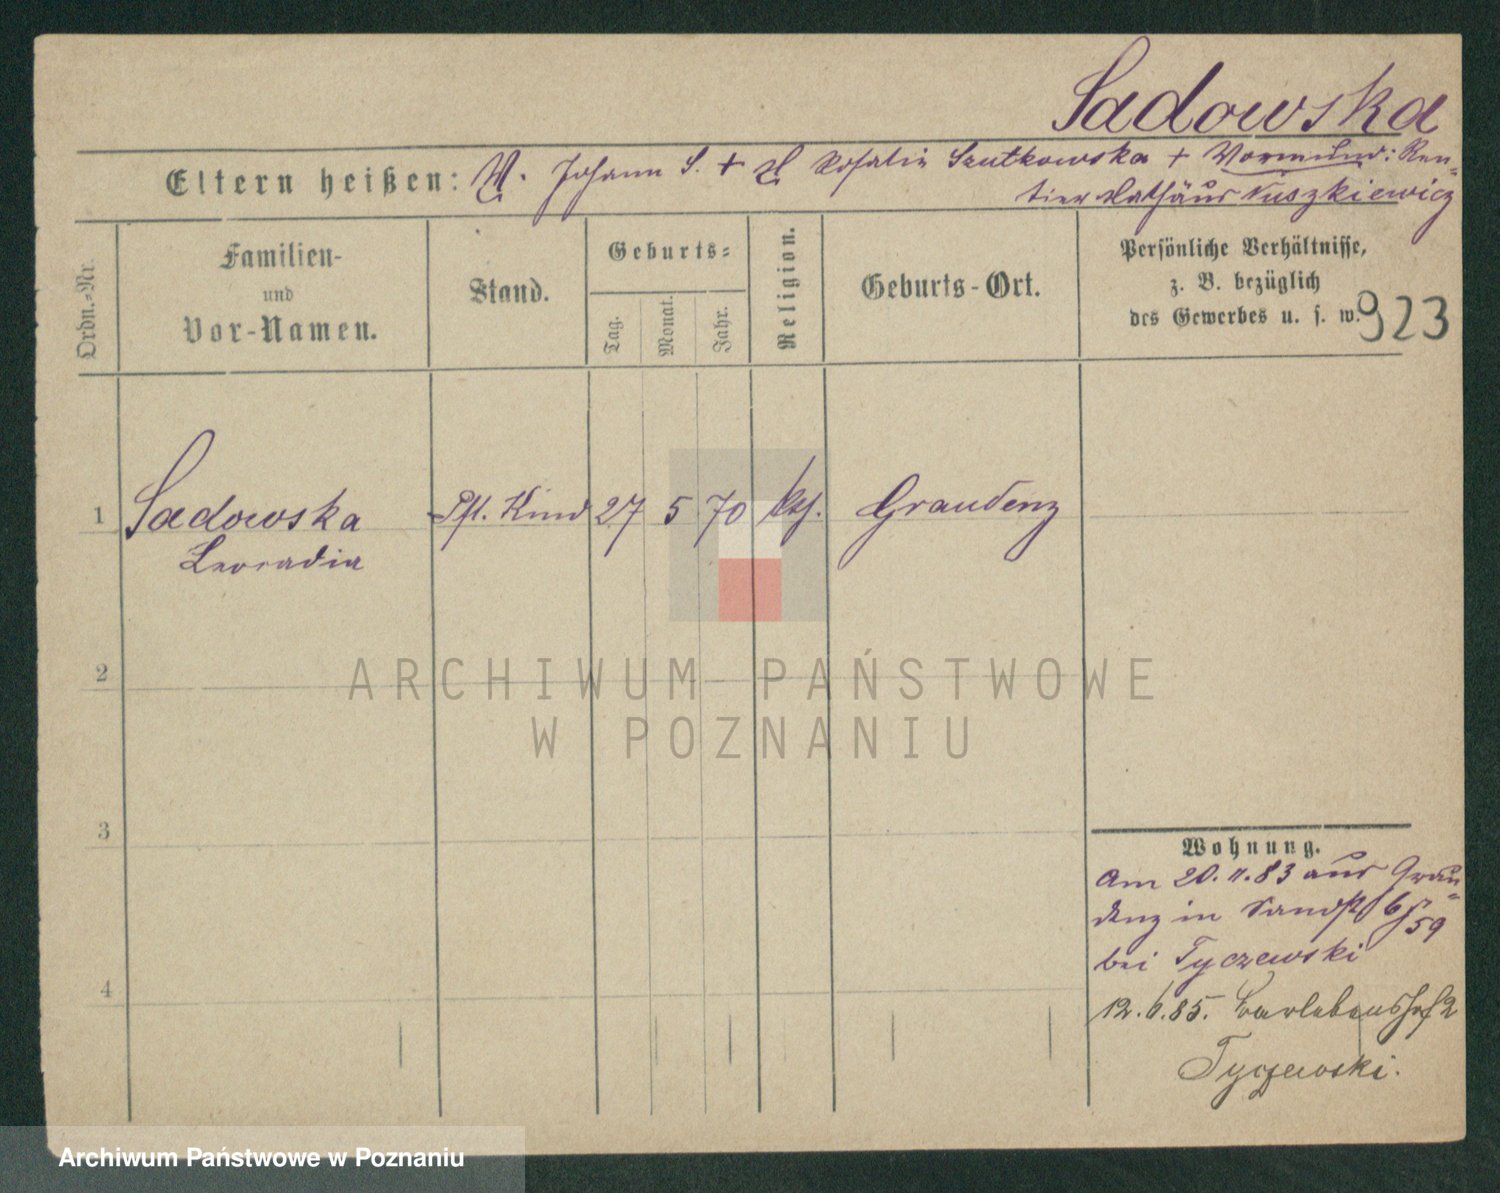 Sadowska
Eltern heißen: V. Johann S. + M. Rosalie Szutkowska + Vormund: Ren-
tier Mathäus Nuszkiewicz
Ordn.-Nr.
Familien-
und
Vor-Namen.
Stand.
Geburts-
Tag.
Monat.
Jahr.
Religion.
Geburts-Ort.
Persönliche Verhältnisse,
z. B. bezüglich
des Gewerbes u. s. w.
923
1 Sadowska Pfl. Kind 27 5 70 kth. Graudenz
Leocadia
2
3
4
Wohnung.
Am 20. 11. 83 aus Grau-
denz in Sandstr
bei Tyczewski
12. 6. 85. 2
Tyczewski.
ARCHIWUM PAŃSTWOWE
W POZNANIU
Archiwum Państwowe w Poznaniu